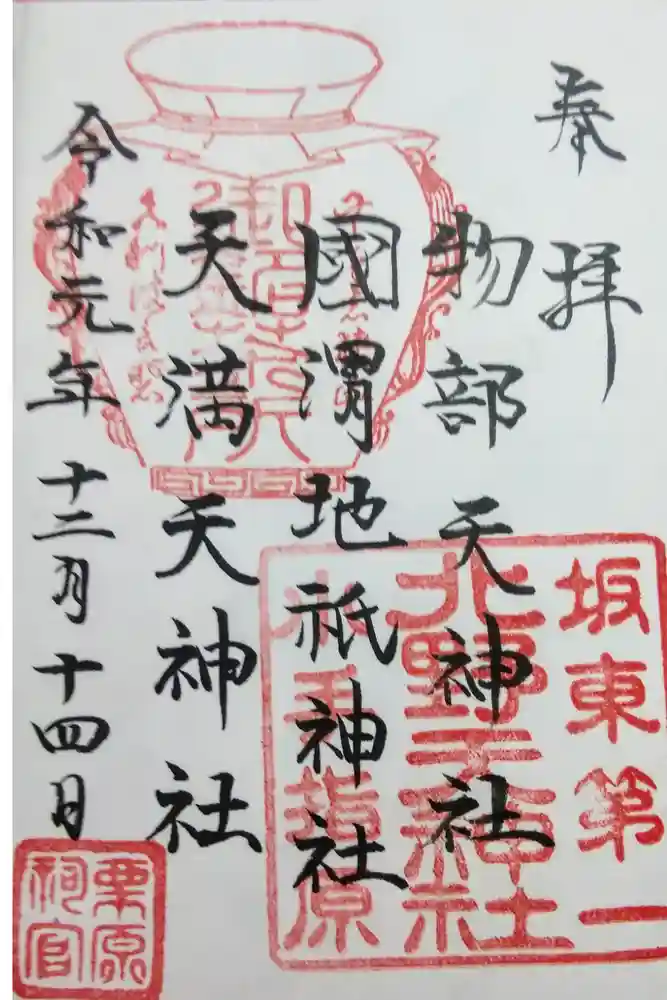 奉拝
物部天神社
國渭地祇神社
天満天神社
令和元年十二月十四日
坂東第一
北野天神社
小手指原
栗原
祠官